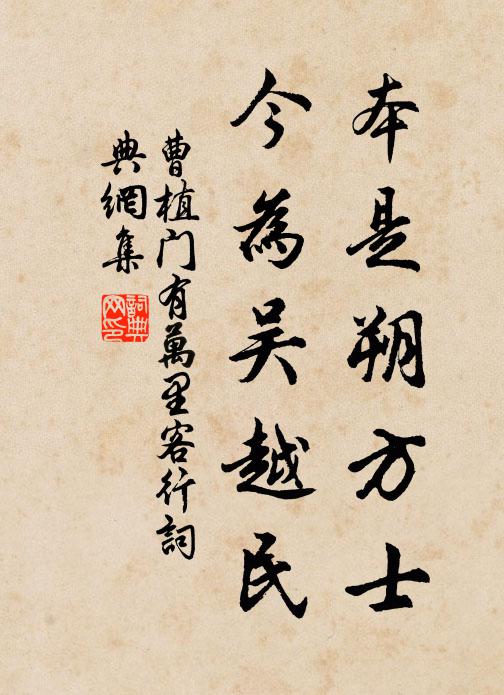 本是朔方士
今為吳越民
曹植门有萬里客行詞
典網集
詞典
网印